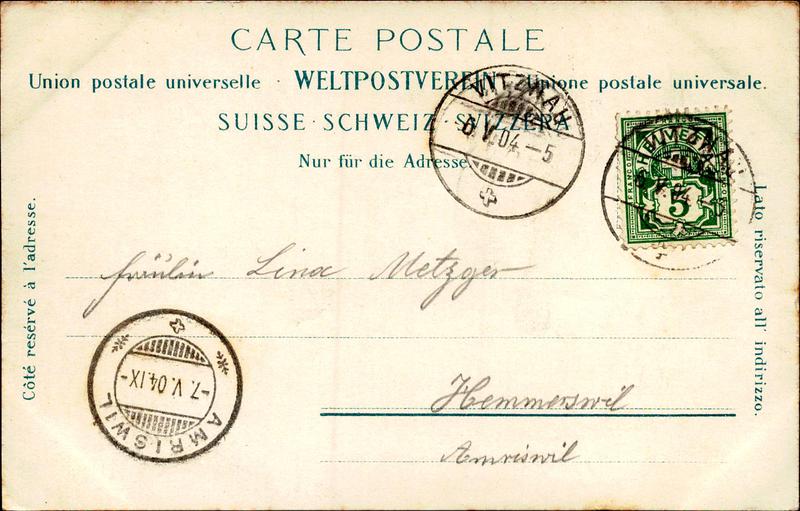 CARTE POSTALE
Union postale universelle · WELTPOSTVEREIN · Unione postale universale.
SUISSE · SCHWEIZ · SVIZZERA
Nur für die Adresse.
WITZWIL
6.V.04.-5
HELVETIA
FRANCO
5
Côté resérvé à l'adresse.
Lato riservato all' indirizzo.
Fräulin Lina Metzger
Hemmerswil
Amriswil
-7.V.04.IX-
AMRISWIL